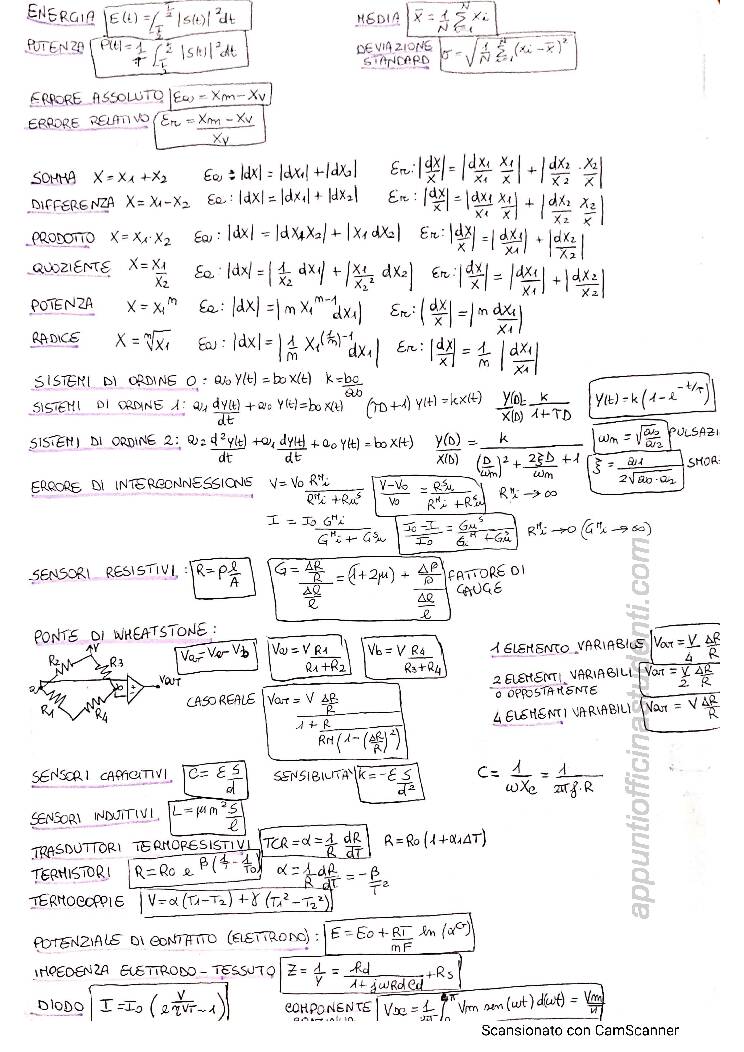 ENERGIA E(t) = ∫_{-T/2}^{T/2} |s(t)|² dt
MEDIA x̄ = 1/N Σ_{i=1}^{N} xi
POTENZA P(t) = 1/T ∫_{-T/2}^{T/2} |s(t)|² dt
DEVIAZIONE STANDARD σ = √(1/N Σ_{i=1}^{N} (xi - x̄)²)
ERRORE ASSOLUTO Ea = Xm - Xv
ERRORE RELATIVO Er = (Xm - Xv)/Xv
SOMMA X = X1 + X2 Ea : |dX| = |dX1| + |dX2| Er : |dX/X| = |dX1/X1 · X1/X| + |dX2/X2 · X2/X|
DIFFERENZA X = X1 - X2 Ea : |dX| = |dX1| + |dX2| Er : |dX/X| = |dX1/X1 · X1/X| + |dX2/X2 · X2/X|
PRODOTTO X = X1 · X2 Ea : |dX| = |dX1 X2| + |X1 dX2| Er : |dX/X| = |dX1/X1| + |dX2/X2|
QUOZIENTE X = X1/X2 Ea : |dX| = |1/X2 dX1| + |X1/X2² dX2| Er : |dX/X| = |dX1/X1| + |dX2/X2|
POTENZA X = X1^m Ea : |dX| = |m X1^{m-1} dX1| Er : |dX/X| = |m dX1/X1|
RADICE X = ᵐ√X1 Ea : |dX| = |1/m X1^{(1/m)-1} dX1| Er : |dX/X| = 1/m |dX1/X1|
SISTEMI DI ORDINE 0 : a0 Y(t) = b0 X(t) k = b0/a0
SISTEMI DI ORDINE 1 : a1 dY(t)/dt + a0 Y(t) = b0 X(t) (τD + 1) Y(t) = kX(t) Y(D)/X(D) = k/(1 + τD) Y(t) = k(1 - e^{-t/τ})
SISTEMI DI ORDINE 2 : a2 d²Y(t)/dt + a1 dY(t)/dt + a0 Y(t) = b0 X(t) Y(D)/X(D) = k/((D/ωm)² + 2ξD/ωm + 1) ωm = √(a0/a2) PULSAZI
ξ = a1/(2√(a0 · a2)) SMOR
ERRORE DI INTERCONNESSIONE V = V0 R^M_i/(R^M_i + R^S_u) (V - V0)/V0 = R^S_u/(R^M_i + R^S_u) R^M_i → ∞
I = I0 G^M_i/(G^M_i + G^S_u) (I0 - I)/I0 = G^S_u/(G^M_i + G^S_u) R^M_i → 0 (G^M_i → ∞)
SENSORI RESISTIVI : R = ρ l/A G = (ΔR/R)/(Δl/l) = (1 + 2μ) + (Δρ/ρ)/(Δl/l) FATTORE DI GAUGE
PONTE DI WHEATSTONE :
V
R2 R3 R1 R4
a b
Vout
Vout = Va - Vb Va = V R1/(R1 + R2) Vb = V R4/(R3 + R4)
1 ELEMENTO VARIABILE Vout = V/4 ΔR/R
2 ELEMENTI VARIABILI O OPPOSTAMENTE Vout = V/2 ΔR/R
4 ELEMENTI VARIABILI Vout = V ΔR/R
CASO REALE Vout = V (ΔR/R)/(1 + R/(RM(1 - (ΔR/R)²)))
SENSORI CAPACITIVI C = ε S/d SENSIBILITÀ k = -ε S/d² C = 1/(ωXc) = 1/(2πf · R)
SENSORI INDUTTIVI L = μm²S/l
TRASDUTTORI TERMORESISTIVI TCR = α = 1/R dR/dT R = R0(1 + α1ΔT)
TERMISTORI R = R0 e^{β(1/T - 1/T0)} α = 1/R dR/dT = -β/T²
TERMOCOPPIE V = α(T1 - T2) + γ(T1² - T2²)
POTENZIALE DI CONTATTO (ELETTRODO) : E = E0 + RT/mF ln(α^{C+})
IMPEDENZA ELETTRODO - TESSUTO Z = 1/Y = Rd/(1 + jωRdCd) + Rs
DIODO I = I0(e^{V/ηVT} - 1) COMPONENTE VDC = 1/2π ∫ Vm sen(ωt) d(ωt) = Vm/π
appuntiofficinastudenti.com
Scansionato con CamScanner